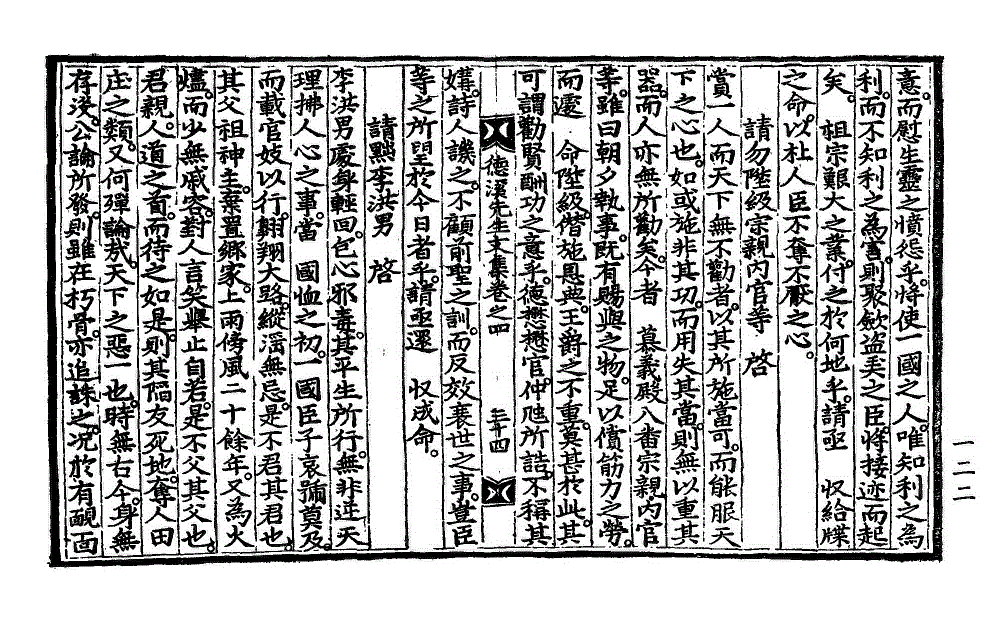 意而慰生靈之憤怨乎將使一國之人唯知利之為
利而不知利之為害則聚歛盜美之臣將接迹而起
矣 祖宗艱大之業付之於何地乎請亟 収給牒
之命以杜人臣不奪不厭之心
請勿陞級宗親內官等 啓
賞一人而天下無不勸者以其所施當可而能服天
下之心也如或施非其功而用失其當則無以重其
器而人亦無所勸矣今者 慕義殿八番宗親內官
等雖曰朝夕執事既有賜與之物足以償筋力之勞
而還 命陞級偕施恩典王爵之不重莫甚於此其
可謂勸賢酬功之意乎德懋懋官仲虺所誥不稱其
德溪先生文集卷之四
媾詩人譏之不顧前聖之訓而反效衰世之事豈臣
等之所望於今日者乎請亟還 収成命
請黜李洪男 啓
李洪男處身輕回包心邪毒其平生所行無非逆天
理拂人心之事當 國恤之初一國臣子哀號莫及
而載官妓以行翱翔大路縱滛無忌是不君其君也
其父祖神主棄置鄉家上雨傍風二十餘年又為火
爐而少無戚容對人言笑舉止自若是不父其父也
君親人道之首而待之如是則其陷友死地奪人田
庄之類又何彈論哉天下之惡一也時無古今身無
存沒公論所發則雖在朽骨亦追誅之况於有靦面
一二二